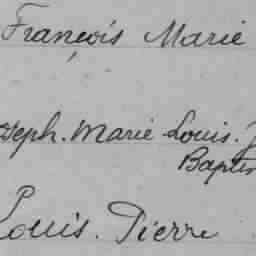 François Marie
Joseph. Marie Louis. J
Baptis
Louis. Pierre